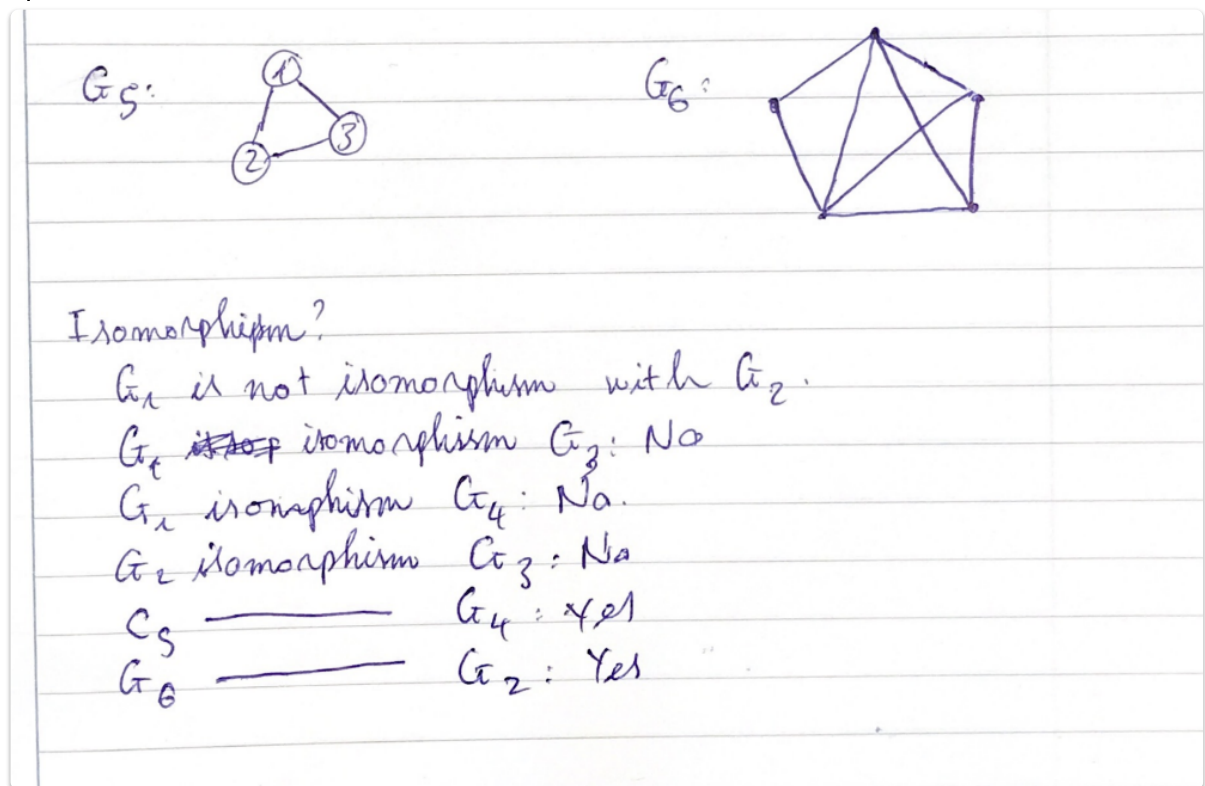 G5: G6:
1
3
2
Isomorphism?
G1 is not isomorphism with G2.
G1 isomorphissm G3: No
G1 isomphism G4: No.
G2 isomorphism G3: No
C5 —— G4: Yes
G6 —— G2: Yes